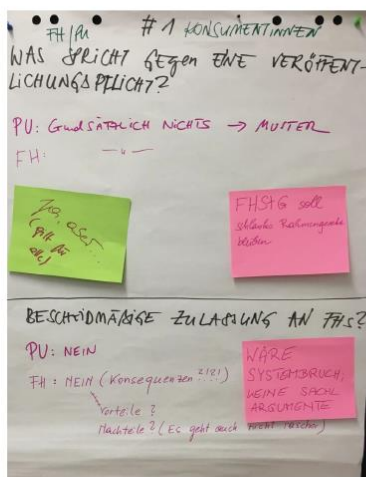 FH/PU
#1 KONSUMENTINNEN
WAS SPRICHT GEGEN EINE VERÖFFENT-
LICHUNGSPFLICHT?
PU: GRUNDSÄTZLICH NICHTS → MUSTER
FH: —"—
Ja, aber...
(gilt für
alle)
FHStG soll
schlankes Rahmengesetz
bleiben
BESCHEIDMÄßIGE ZULASSUNG AN FHs?
PU: NEIN
FH: NEIN (Konsequenzen ?!?!)
Vorteile?
Nachteile? (Es geht auch nicht rascher)
WÄRE
SYSTEMBRUCH,
KEINE SACHL.
ARGUMENTE